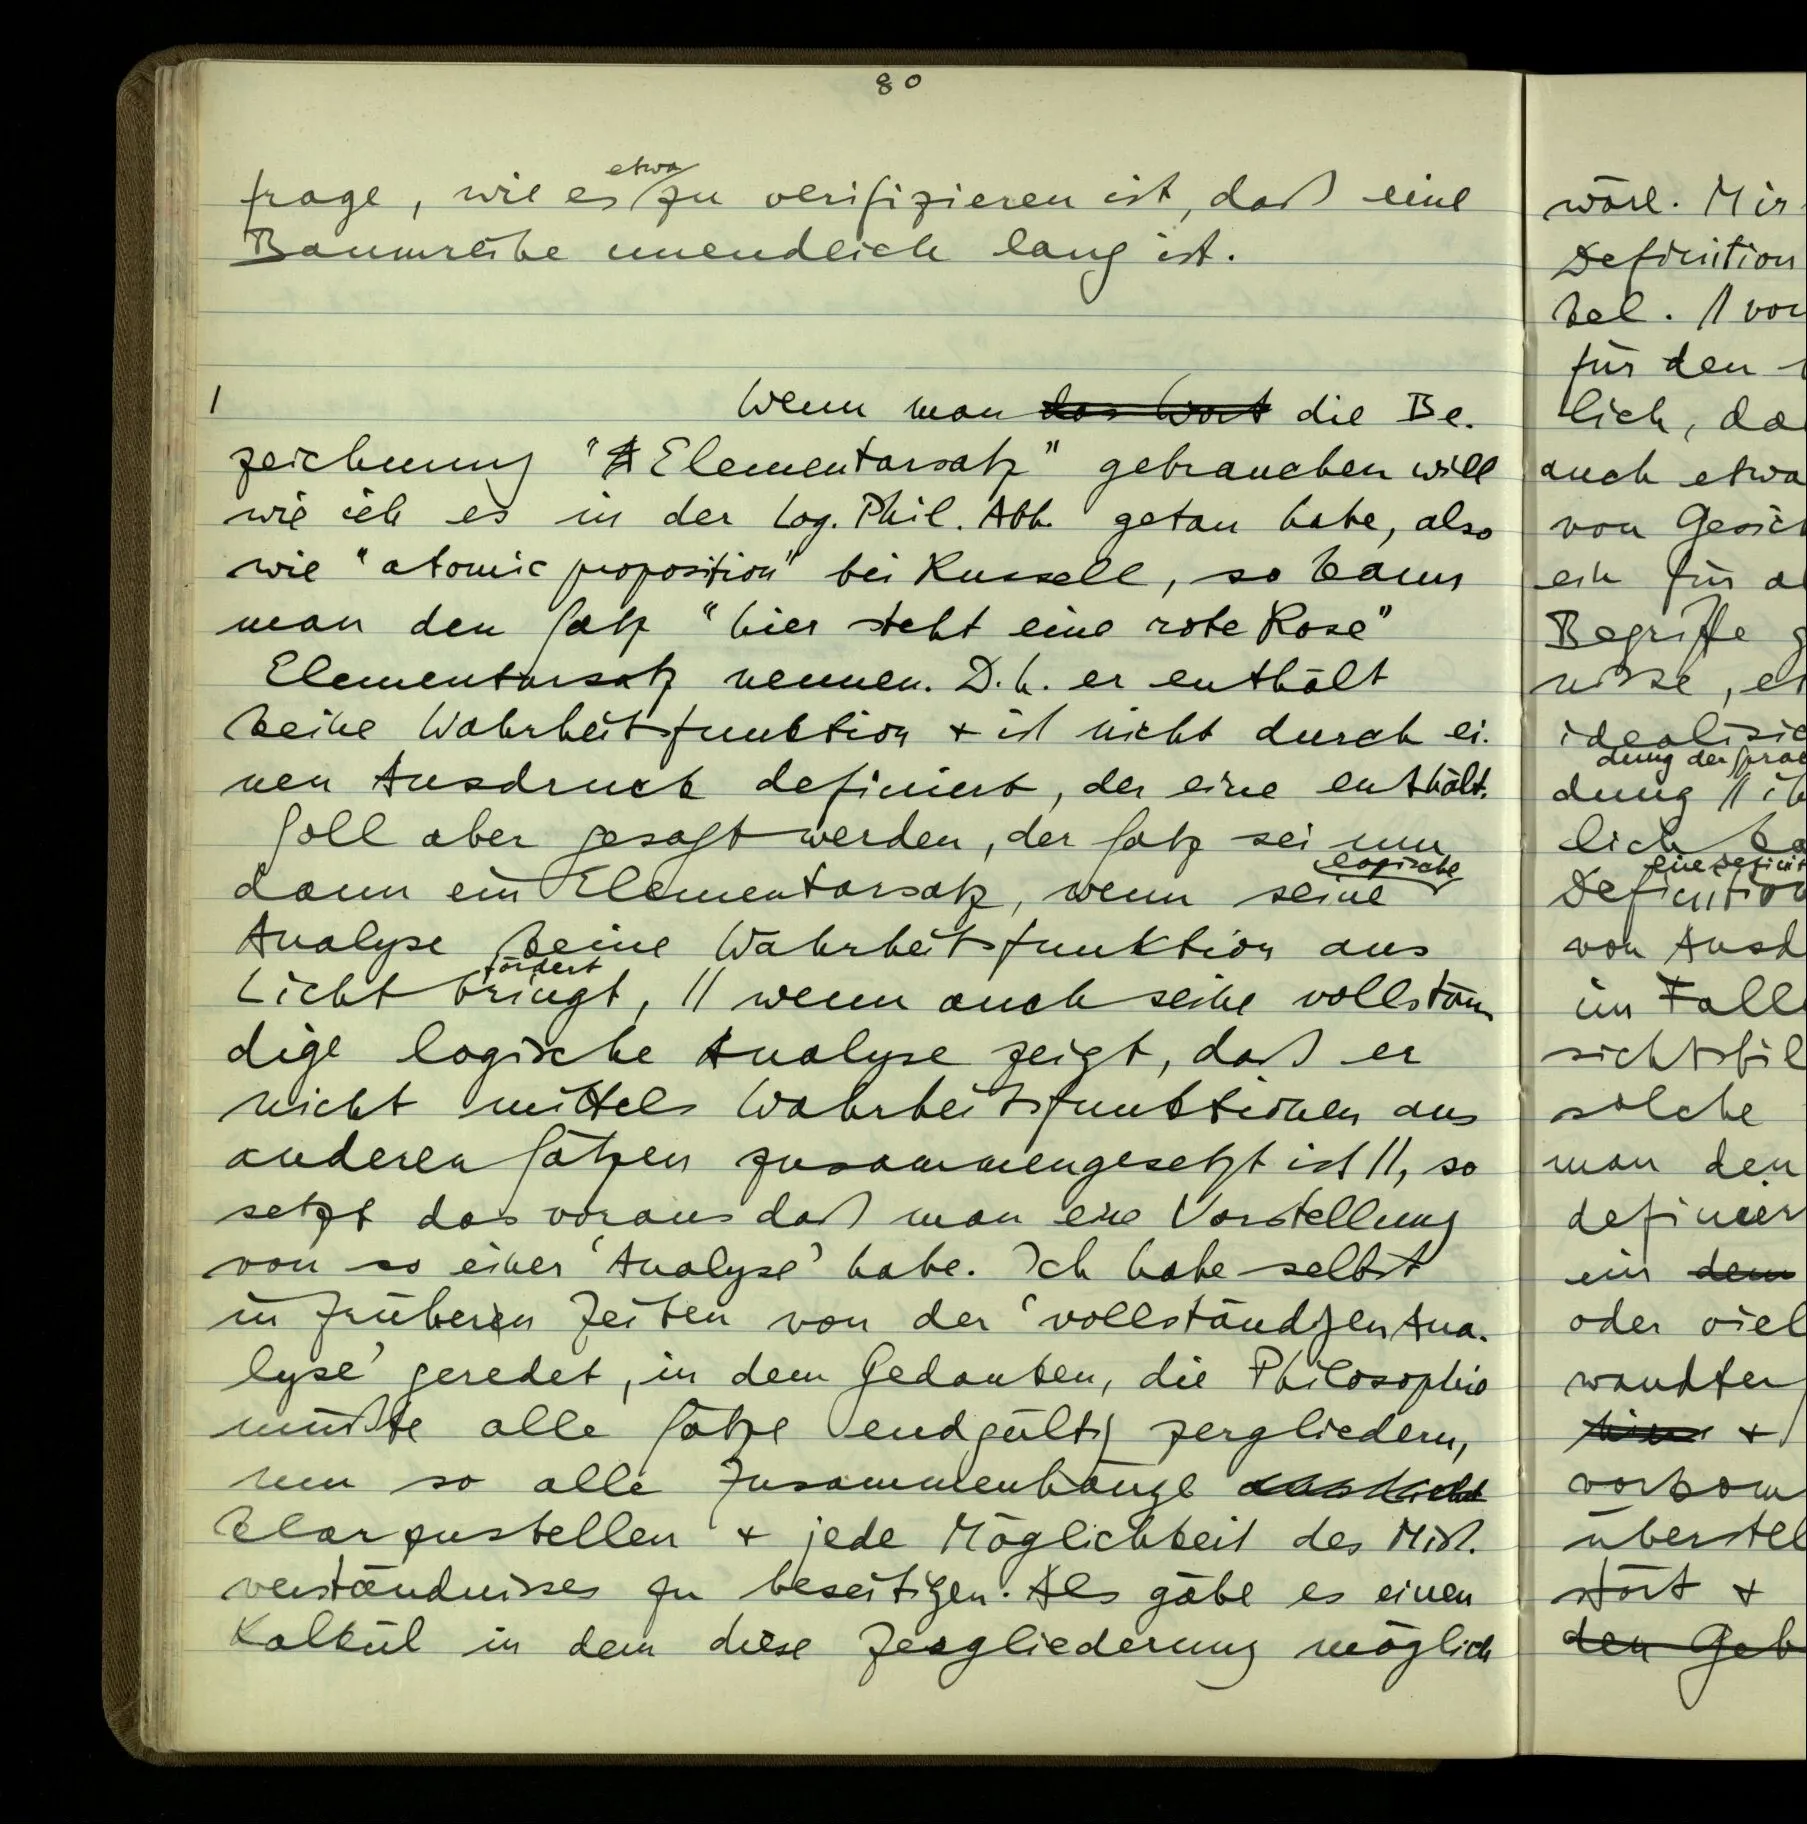 80
etwa
frage, wie es zu verifizieren ist, daß eine
Baumreihe unendlich lang ist.
1
Wenn man das Wort die Be-
zeichnung "A Elementarsatz" gebrauchen will
wie ich es in der Log. Phil. Abh. getan habe, also
wie "atomic proposition" bei Russell, so kann
man den Satz "hier steht eine rote Rose"
Elementarsatz nennen. D.h. er enthält
keine Wahrheitsfunktion + ist nicht durch ei-
nen Ausdruck definiert, der eine enthält.
Soll aber gesagt werden, der Satz sei nur
logische
dann ein Elementarsatz, wenn seine
Analyse keine Wahrheitsfunktion ans
fördert
Licht bringt, // wenn auch seine vollstän
dige logische Analyse zeigt, daß er
nicht mittels Wahrheitsfunktionen aus
anderen Sätzen zusammengesetzt ist //, so
setzt das voraus daß man eine Vorstellung
von so einer 'Analyse' habe. Ich habe selbst
in früheren Zeiten von der 'vollständigen Ana-
lyse' geredet, in dem Gedanken, die Philosophie
müßte alle Sätze endgültig zergliedern,
um so alle Zusammenhänge
klarzustellen + jede Möglichkeit des Miß-
verständnisses zu beseitigen. Als gäbe es einen
Kalkül in dem diese Zergliederung möglich
wäre. Mir
Definition
kel. // vor
für den
lich, da
auch etwa
von Gesich
ein für a
Begriffe g
nisse, e
idealisie
dung der Sprac
dung // ih
lich ka
eine Definit
Definition
von Ausd
im Fall
sichtsbil
solche
man den
definier
ein dem
oder viel
wandter
+
vorkom
überstel
stört +
den Geb